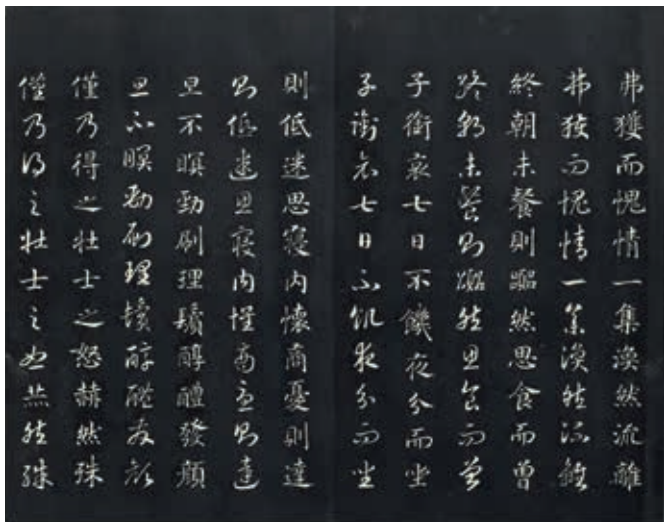 弗獲而愧情一集渙然流離
弗獲而愧情一集渙然流離
終朝未餐則嚻然思食而曾
終朝未餐則嚻然思食而曾
子銜哀七日不饑夜分而坐
子銜哀七日不飢夜分而坐
則低迷思寢內懷商憂則達
則低迷思寢內懷商憂則達
旦不瞑勁刷理鬢醇醴發顏
旦不瞑勁刷理鬢醇醴發顏
僅乃得之壯士之怒赫然殊
僅乃得之壯士之怒赫然殊